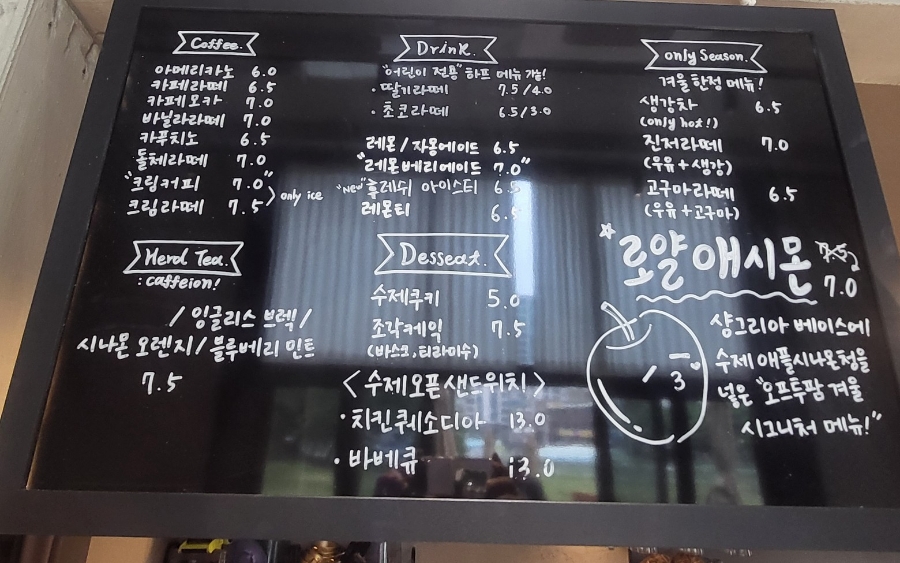 Coffee.
아메리카노 6.0
카페라떼 6.5
카페모카 7.0
바닐라라떼 7.0
카푸치노 6.5
돌체라떼 7.0
"크림커피 7.0"
크림라떼 7.5
only ice
Herd Tea.
: caffeion!
/ 잉글리스 브렉 /
시나몬 오렌지 / 블루베리 민트
7.5
Drink.
"어린이 전용" 하프 메뉴 가능!
· 딸기라떼 7.5/4.0
· 초코라떼 6.5/3.0
레몬/자몽에이드 6.5
"레몬베리에이드 7.0"
"New" 후레쉬 아이스티 6.5
레몬티 6.5
Desseat.
수제쿠키 5.0
조각케익 7.5
(바스크, 티라미수)
<수제오픈샌드위치>
· 치킨퀘소디아 13.0
· 바베큐 13.0
only Season.
겨울한정 메뉴!
생강차 6.5
(only hot!)
진저라떼 7.0
(우유+생강)
고구마라떼 6.5
(우유+고구마)
로얄애시몬 7.5
7.0
샹그리아 베이스에
수제 애플시나몬청을
넣은 "오프투팜 겨울
시그니처 메뉴!"